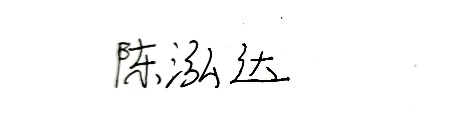 陈泓达